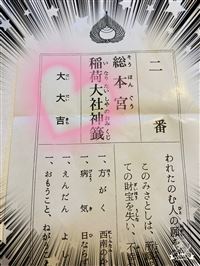 二番
総本宮
そうほんぐう
稲荷大社神籤
いなりたいしゃおみくじ
大大吉
われたのむ人の願
このみさとしは、
ての財宝を失い、不
一、方がく　西南の
一、病気　日なら
一、えんだん　よし
一、おもうこと、ねが